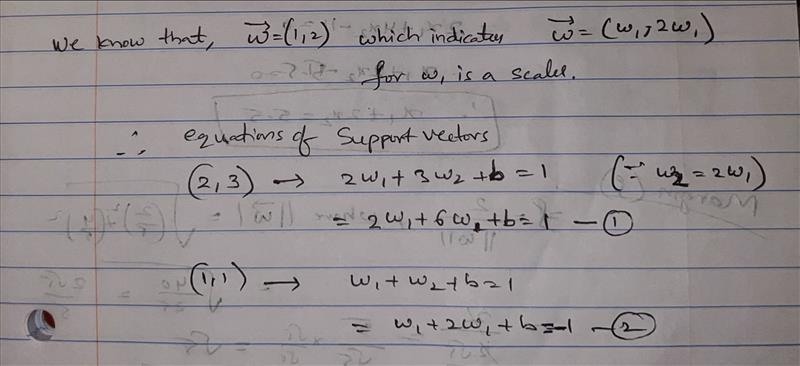 We know that, w⃗ = (1,2) which indicates w⃗ = (w₁, 2w₁)
for w₁ is a scaler.
∴ equations of Support vectors
(2,3) → 2w₁ + 3w₂ + b = 1 (∵ w₂ = 2w₁)
= 2w₁ + 6w₁ + b = 1 — ①
(1,1) → w₁ + w₂ + b = 1
= w₁ + 2w₁ + b = -1 — ②